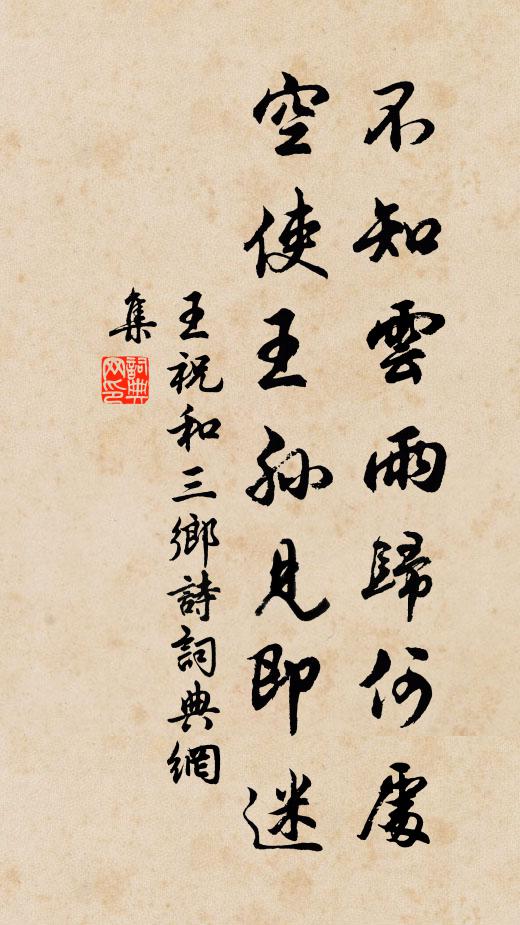 不知雲雨歸何處
空使王孫見即迷
王祝和三鄉詩詞典網
集
詞典
网印